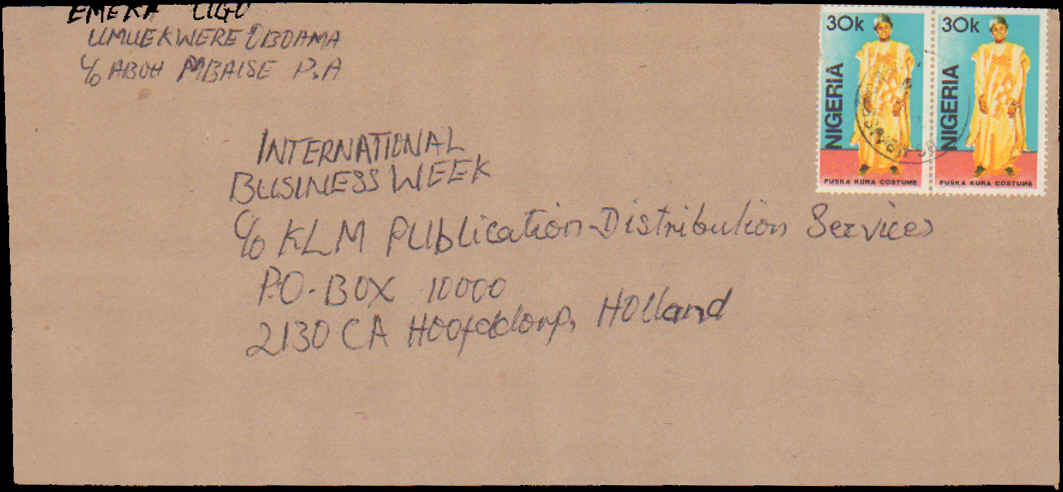 EMEKA UGO
UMUEKWERE OBOAMA
c/o ABOH MBAISE P.A
INTERNATIONAL
BUSINESS WEEK
c/o KLM PUblication-Distribution Services
P.O-BOX 10000
2130 CA Hoofddorp, HOlland
30k
NIGERIA
FUSKA KURA COSTUME
30k
NIGERIA
FUSKA KURA COSTUME